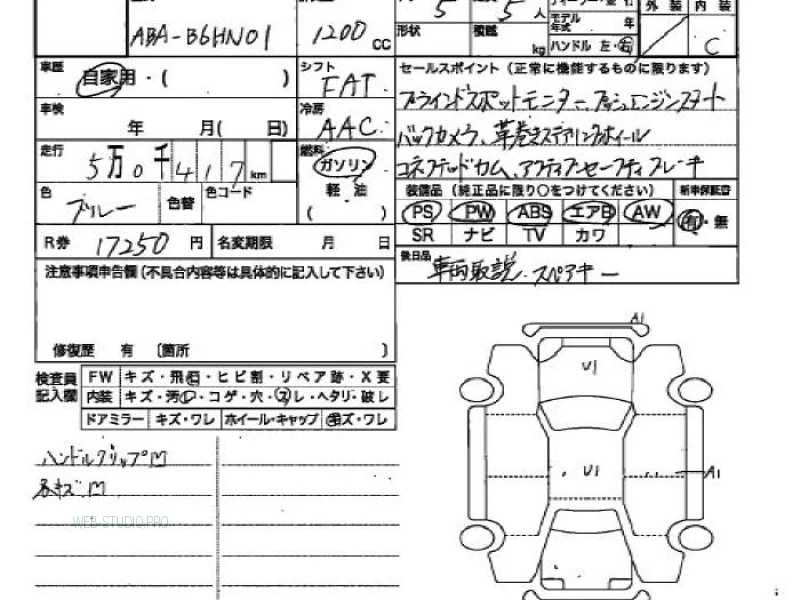 ABA-B6HN01
1200 CC
5
5 人
モデル年式 年
外装 内装
形状
積載 kg
ハンドル 左・右
C
車歴 自家用・( )
シフト FAT
車検 年 月( 日)
冷房 AAC
走行 5万0千417 km
燃料 ガソリン
軽油
( )
色 ブルー 色替 色コード
R券 17250 円 名変期限 月 日
セールスポイント(正常に機能するものに限ります)
ブラインドスポットモニター、プッシュエンジンスタート
バックカメラ、革巻きステアリングホイール
コネクテッドカム、アクティブセーフティブレーキ
装備品(純正品に限り○をつけてください) 新車保証書
PS PW ABS エアB AW 有・無
SR ナビ TV カワ
後日品 車両取説、スペアキー
注意事項申告欄(不具合内容等は具体的に記入して下さい)
修復歴 有 〔箇所 〕
検査員記入欄
FW キズ・飛石・ヒビ割・リペア跡・X要
内装 キズ・汚レ・コゲ・穴・スレ・ヘタリ・破レ
ドアミラー キズ・ワレ ホイール・キャップ キズ・ワレ
ハンドルグリップ凹
各キズ凹
WEB-STUDIO.PRO
A1
U1
U1
A1